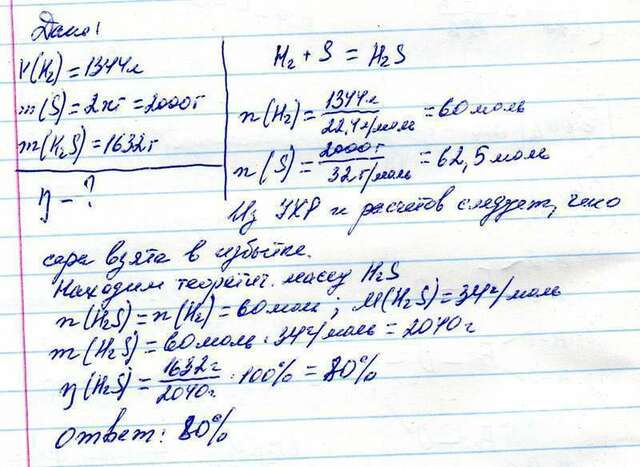 Дано:
V(H₂) = 1344л
m(S) = 2кг = 2000г
m(H₂S) = 1632г
η - ?
H₂ + S = H₂S
n(H₂) = 1344л / 22,4л/моль = 60 моль
n(S) = 2000г / 32г/моль = 62,5 моль
Из УХР и расчетов следует, что
сера взята в избытке.
Находим теоретич. массу H₂S
n(H₂S) = n(H₂) = 60моль ; M(H₂S) = 34г/моль
m(H₂S) = 60моль · 34г/моль = 2040г
η(H₂S) = 1632г / 2040г · 100% = 80%
Ответ: 80%